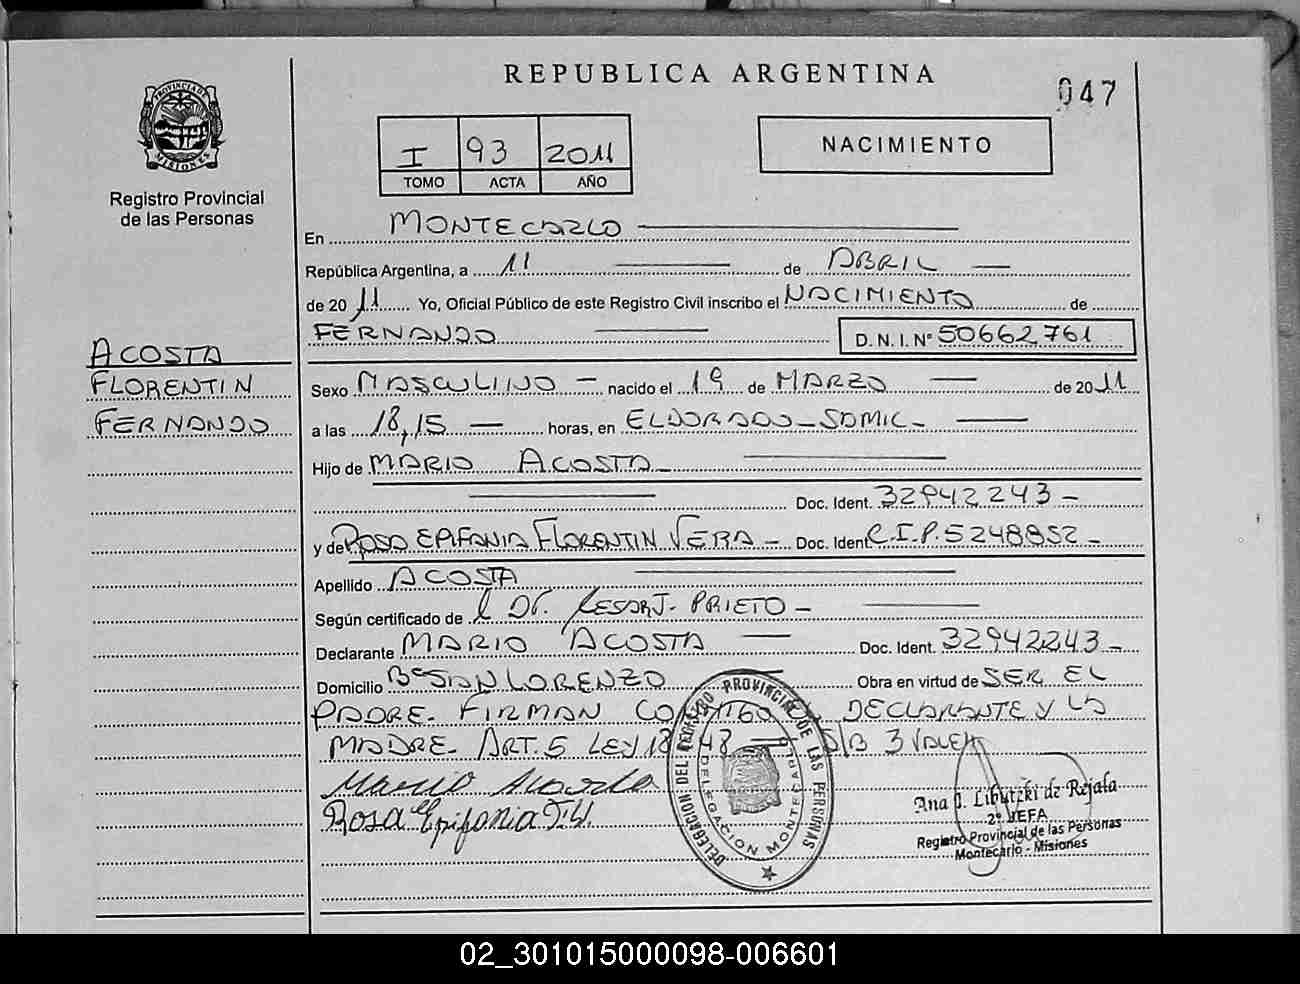 REPUBLICA ARGENTINA
047
PROVINCIA DE MISIONES
Registro Provincial
de las Personas
I 93 2011
TOMO ACTA AÑO
NACIMIENTO
En MONTECARLO
República Argentina, a 11 de ABRIL
de 20 11 Yo, Oficial Público de este Registro Civil inscribo el NACIMIENTO de
FERNANDO D. N. I. Nº 50662761
ACOSTA
FLORENTIN
FERNANDO
Sexo MASCULINO nacido el 19 de MARZO de 20 11
a las 18,15 horas, en ELDORADO-SAMIC-
Hijo de MARIO ACOSTA
Doc. Ident. 32942243
y de ROSA EPIFANIA FLORENTIN VERA Doc. Ident C.I.P. 5248852
Apellido ACOSTA
Según certificado de l DR. CESAR J. PRIETO
Declarante MARIO ACOSTA Doc. Ident. 32942243
Domicilio Bº SAN LORENZO Obra en virtud de SER EL
PADRE. FIRMAN CONMIGO DECLARANTE Y LA
MADRE. ART. 5 LEY 18 48 S/B 3 VALEN
Mario Acosta
Rosa Epifania F.V.
DELEGACION DEL REGISTRO PROVINCIAL DE LAS PERSONAS
DELEGACION MONTECARLO
Ana J. Libutzki de Rejala
2º JEFA
Registro Provincial de las Personas
Montecarlo - Misiones
02_301015000098-006601